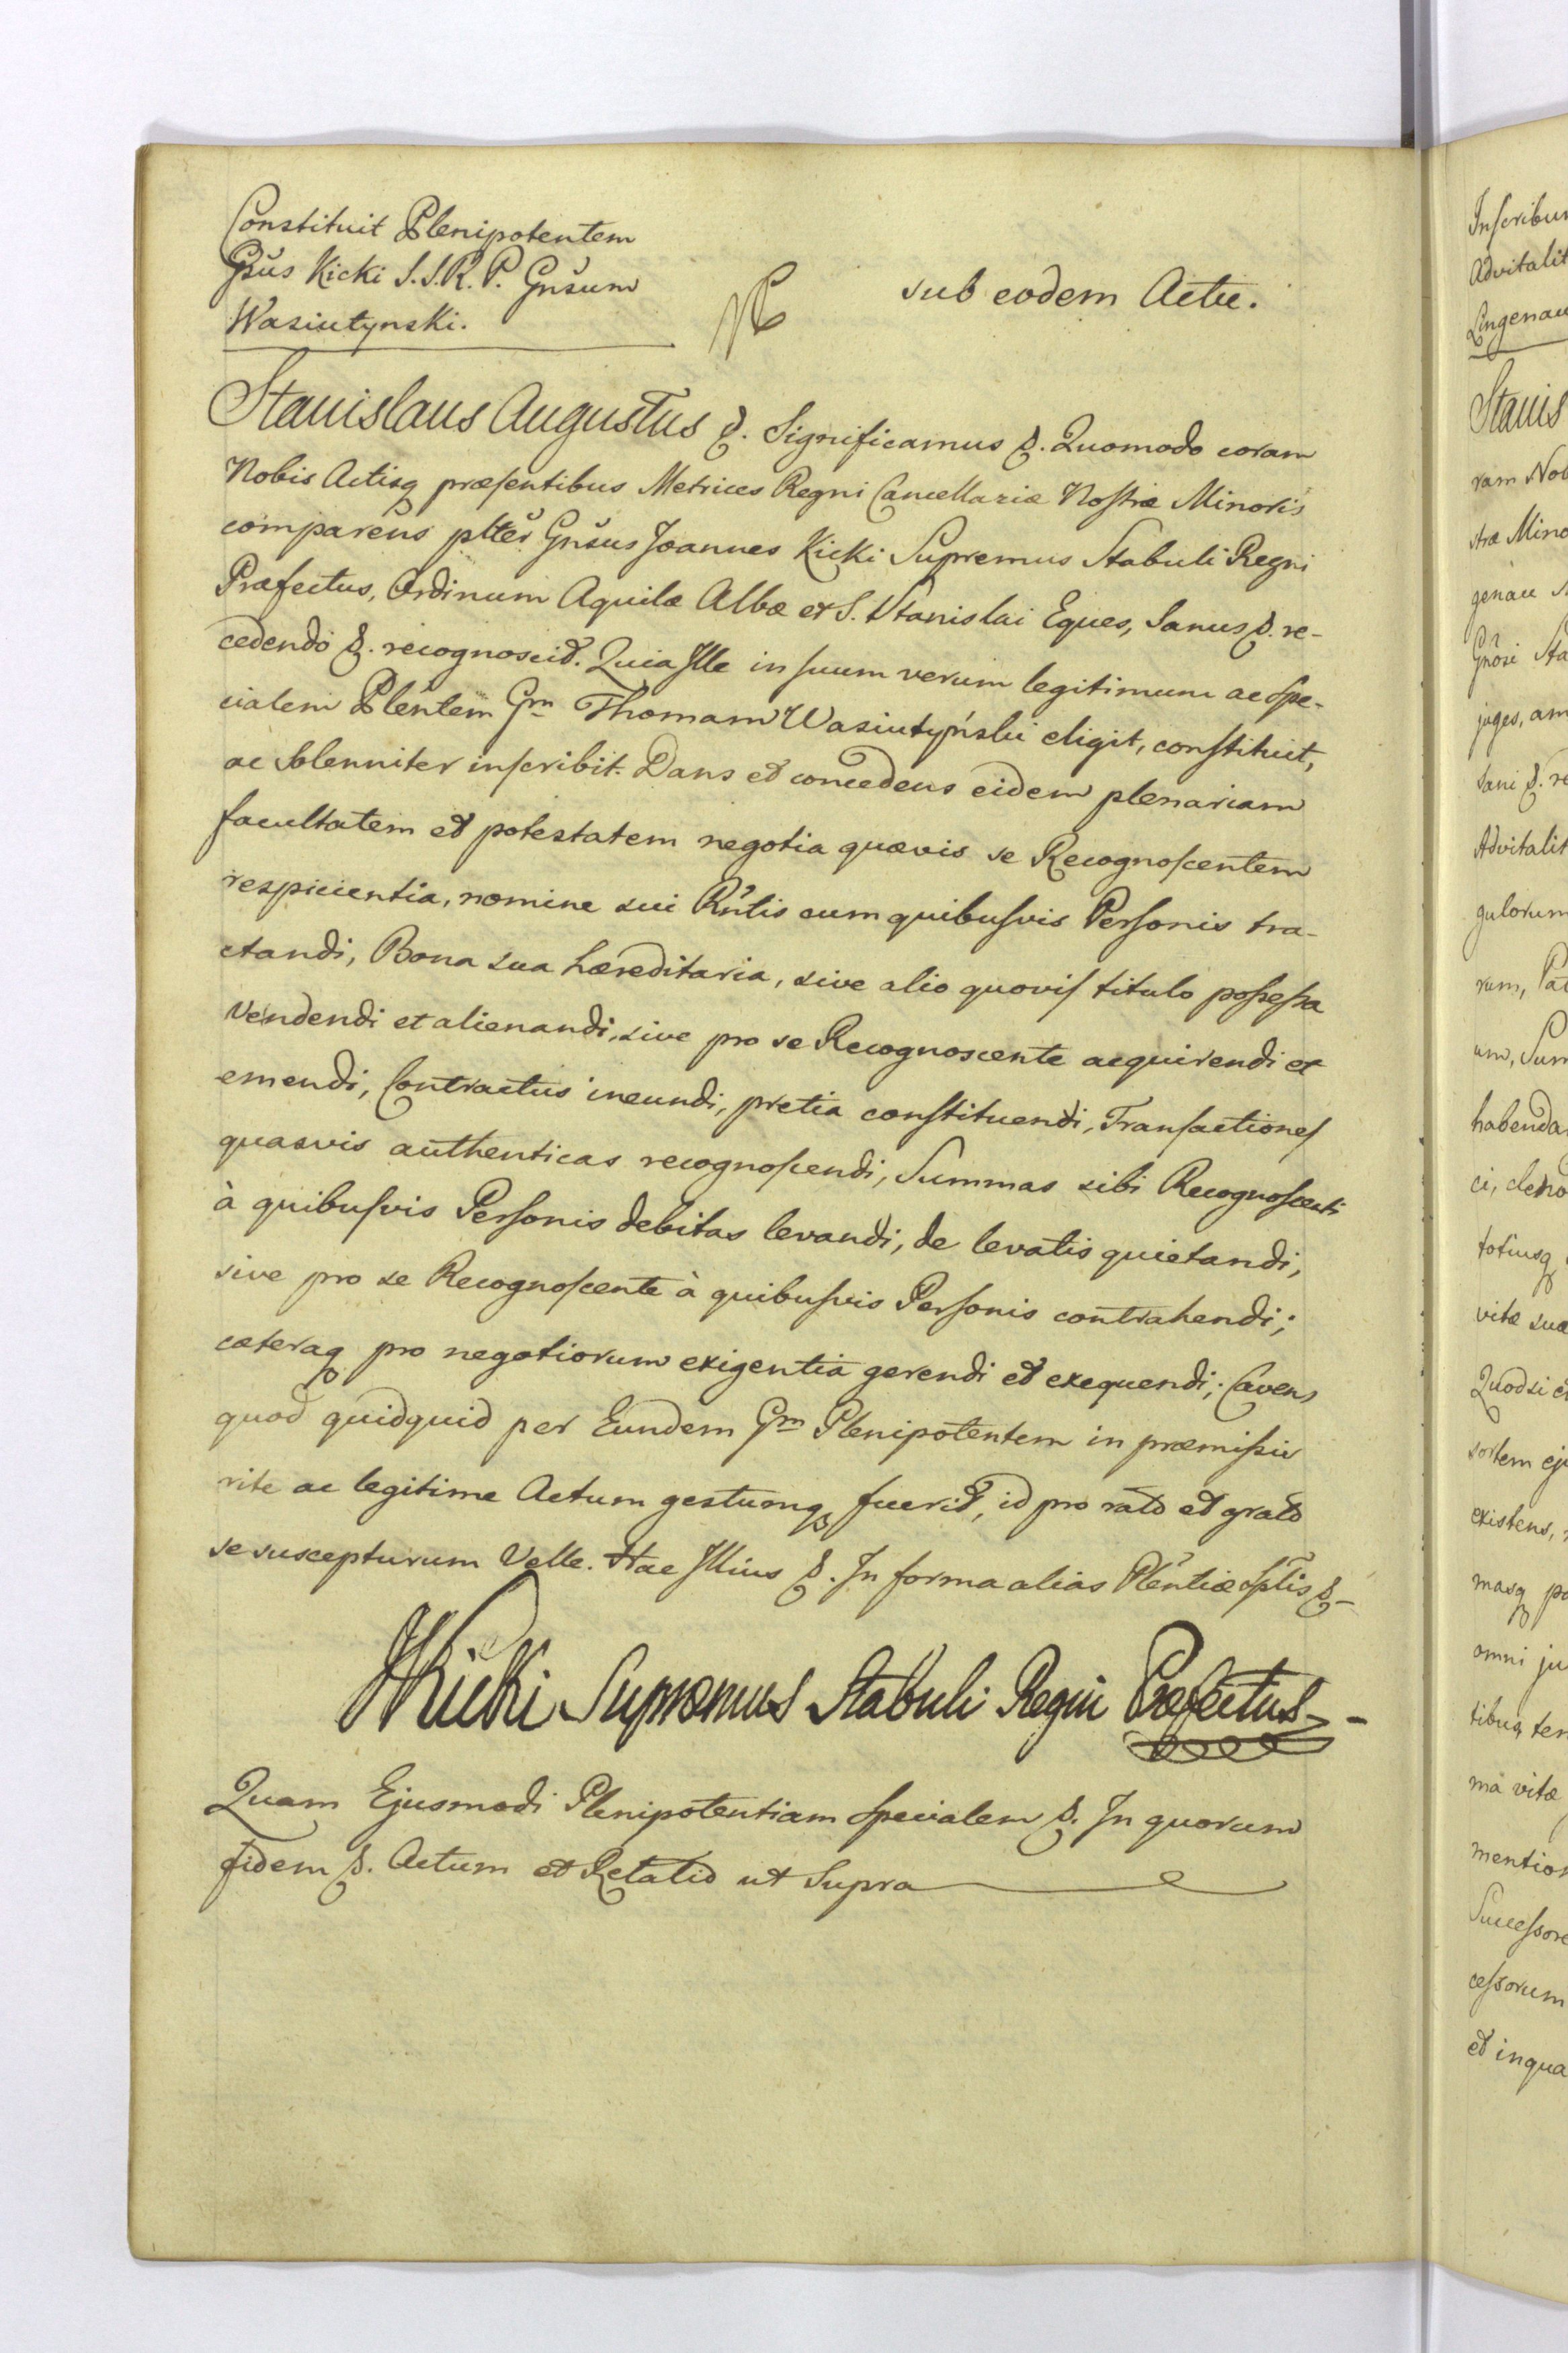 Constituit Plenipotentem
Gsus Kicki S.S.R.P. Gnsum
Wasiutynski.
sub eodem Actu.
Stanislaus Augustus &. Significamus &. Quomodo coram
Nobis Actisq præsentibus Metrices Regni Cancellariæ Nostræ Minoris
comparens pltter Gnsus Joannes Kicki Supremus Stabuli Regni
Præfectus, Ordinum Aquilæ Albæ et S. Stanislai Eques, Sanus &. re-
cedendo &. recognoscit. Quia Ille in suum verum legitimum ac Spe-
cialem Plentem Gm Thomam Wasiutyński eligit, constituit,
ac Solenniter inscribit. Dans et concedens eidem plenariam
facultatem et potestatem negotia quævis se Recognoscentem
respicientia, nomine sui Rntis cum quibusvis Personis tra-
ctandi, Bona sua hæreditaria, sive alio quovis titulo possessa
Vendendi et alienandi, sive pro se Recognoscente acquirendi et
emendi, Contractus ineundi, pretia constituendi, Transactiones
quasvis authenticas recognoscendi, Summas sibi Recognoscenti
à quibusvis Personis debitas levandi, de levatis quietandi,
sive pro se Recognoscente à quibusvis Personis contrahendi;
cæteraq pro negotiorum exigentia gerendi et exequendi; Cavens
quod quidquid per Eundem Gm Plenipotentem in præmissis
rite ac legitime Actum gestumq fuerit, id pro rato et grato
se suscepturum Velle. Hac Illius &. In forma alias Plentiæ Splis &-
JKicki Supremus Stabuli Regni Præfectus
Quam Ejusmodi Plenipotentiam Specialem &. In quorum
fidem &. Actum et Relatio ut Supra
Inscribun
Advitalit
Lingenau
Stanis
ram Nob
stræ Mino
genau S
Gnosi Sta
juges, am
sani &. re
Advitalit
gulorum
rum, Pat
um, Sum
habenda
totiusq
vitæ suæ
Quodsi
sortem ej
existens,
masq po
omni ju
tibus, ter
ma vitæ
mention
Successore
cessorum
et inqua